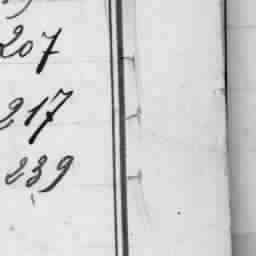 207
217
239